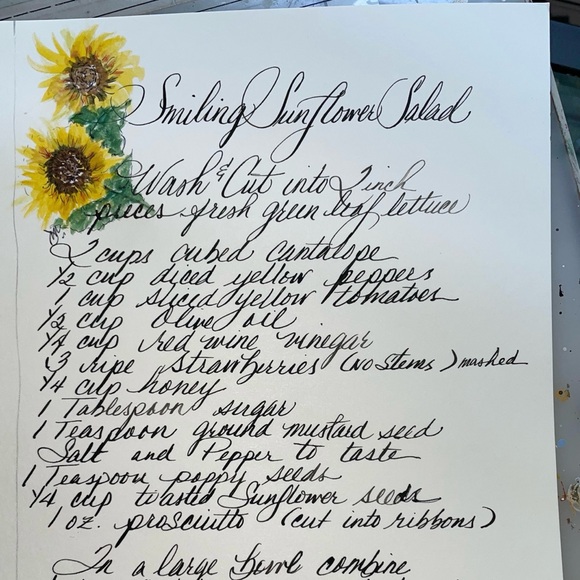 Smiling Sunflower Salad
Wash & Cut into 2 inch
pieces fresh green leaf lettuce
2 cups cubed cantalope
1/2 cup diced yellow peppers
1 cup sliced yellow tomatoes
1/2 cup Olive oil
1/4 cup red wine vinegar
3 ripe strawberries (no stems) mashed
1/4 cup honey
1 Tablespoon sugar
1 Teaspoon ground mustard seed
Salt and Pepper to taste
1 Teaspoon poppy seeds
1/4 cup toasted Sunflower seeds
1 oz. prosciutto (cut into ribbons)
In a large bowl combine